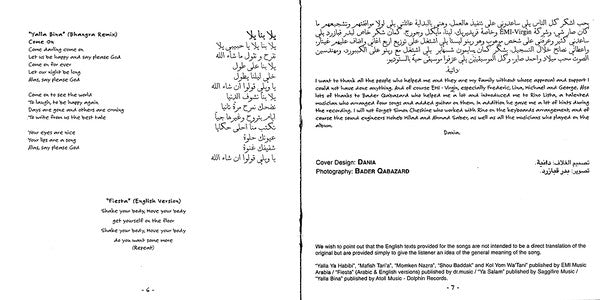 "Yalla Bina" (Bhangra Remix)
Come On
Come darling come on
Let us be happy and say please God
Come on for ever
Let our night be long
Alas, say please God
Come on to see the world
To laugh, to be happy again
Days are gone and others are coming
To write from us the best tale
Your eyes are nice
Your lips are a song
Alas, say please God
يلا بنا يلا
يلا بنا يلا يا حبيبي يلا
نفرح و نقول ما شاء الله
يلا بنا على طول
خلي ليلنا يطول
يا ويلي قولوا ان شاء الله
يلا بنا نشوف الدنيا
نضحك نفرح مرة تانيا
ايام بتروح وغيرها جيا
نكتب منا احلى حكايا
عيونك حلوة
شفيفك غنوة
يا ويلي قولوا ان شاء الله
"Fiesta" (English Version)
Shake your body, Move your body
get yourself on the floor
Shake your body, Move your body
do you want some more
(Repeat)
- 6 -
I want to thank all the people who helped me and they are my family without whose approval and support I
could not have done anything. And of course EMI - Virgin, especially Frederic, Lina, Michael and George. Also
lots of thanks to Bader Qabazard who helped me a lot and introduced me to Rino Lista, a talented
musician who arranged four songs and added guitar on them, in addition he gave me a lot of hints during
the recording. I will not forget Simon Cheshire who worked with Rino on the keyboards arrangement, and of
course the sound engineers Habeb Milad and Ahmad Saber, as well as all the musicians who played on the
album.
Dania.
Cover Design: DANIA
Photography: BADER QABAZARD
تصميم الغلاف: دانية.
تصوير: بدر قبازرد.
We wish to point out that the English texts provided for the songs are not intended to be a direct translation of
the original but are provided simply to give the listener an idea of the general meaning of the song.
"Yalla Ya Habibi", "Mafish Tani'a", "Momken Nazra", "Shou Baddak" and Kol Yom Wa'Tani" published by EMI Music
Arabia / "Fiesta" (Arabic & English versions) published by dr.music / "Ya Salam" published by Saggifire Music /
"Yalla Bina" published by Atoll Music - Dolphin Records.
- 7 -